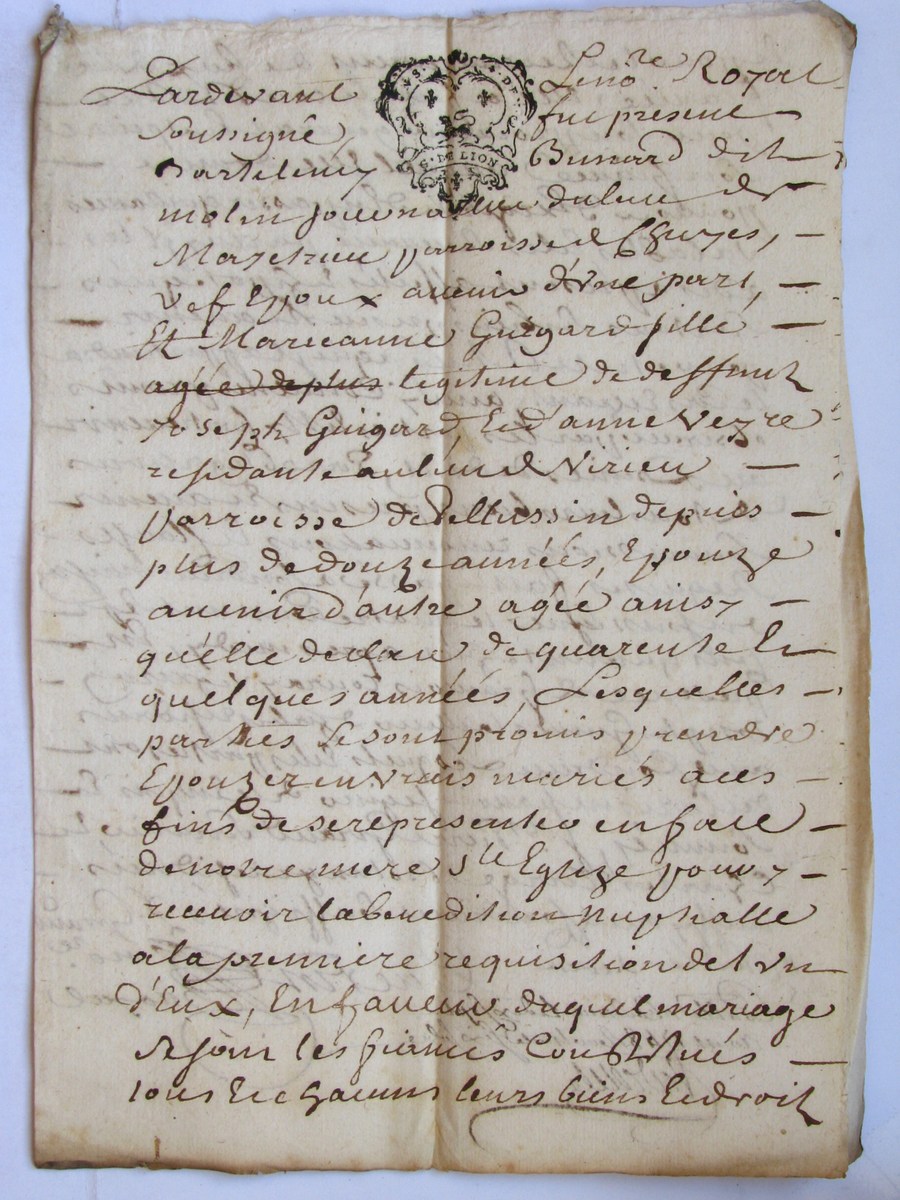 Pardevant Le no.re Royal
Soussigné fut present
Bartelemy Bunard dit
molin journallier du lieu de
parroisse de Chuyes,
vef Epoux avenir d'vne part,
Et Marieanne Guigard fille
agée de plus legitime de deffunt
Joseph Guigard, Et d'anne Vezre
residante au lieu de Virieu
parroisse de Pellussin depuis
plus de douze années, Epouze
avenir d'autre agée ainsy
qu'elle declare de quarente Et
quelques années, Lesquelles
parties se sont promis prendre
Epouzer en vrais mariés a ces
fins de se representer en face
de notre mere S.te Eglize pour y
recevoir la benedition nuptialle
a la premiere requisition de l'vn
d'Eux, En faveur duquel mariage
se sont les fiancés Constitués
tous Et chacuns leurs biens Et droit
VNS. DE
G. DE LION